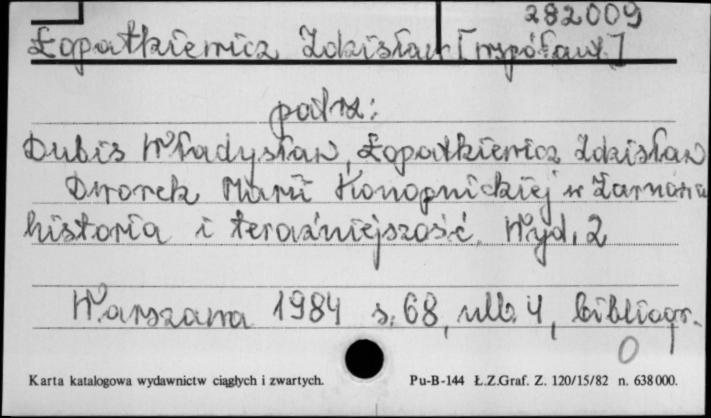 282009
Łopatkiewicz Zdzisław [współaut.]
patrz:
Dubis Władysław, Łopatkiewicz Zdzisław
Dworek Marii Konopnickiej w Żarnowcu
historia i teraźniejszość. Wyd. 2
Warszawa 1984 s. 68, nlb. 4, bibliogr.
0
Karta katalogowa wydawnictw ciągłych i zwartych. Pu-B-144 Ł.Z.Graf. Z. 120/15/82 n. 638 000.